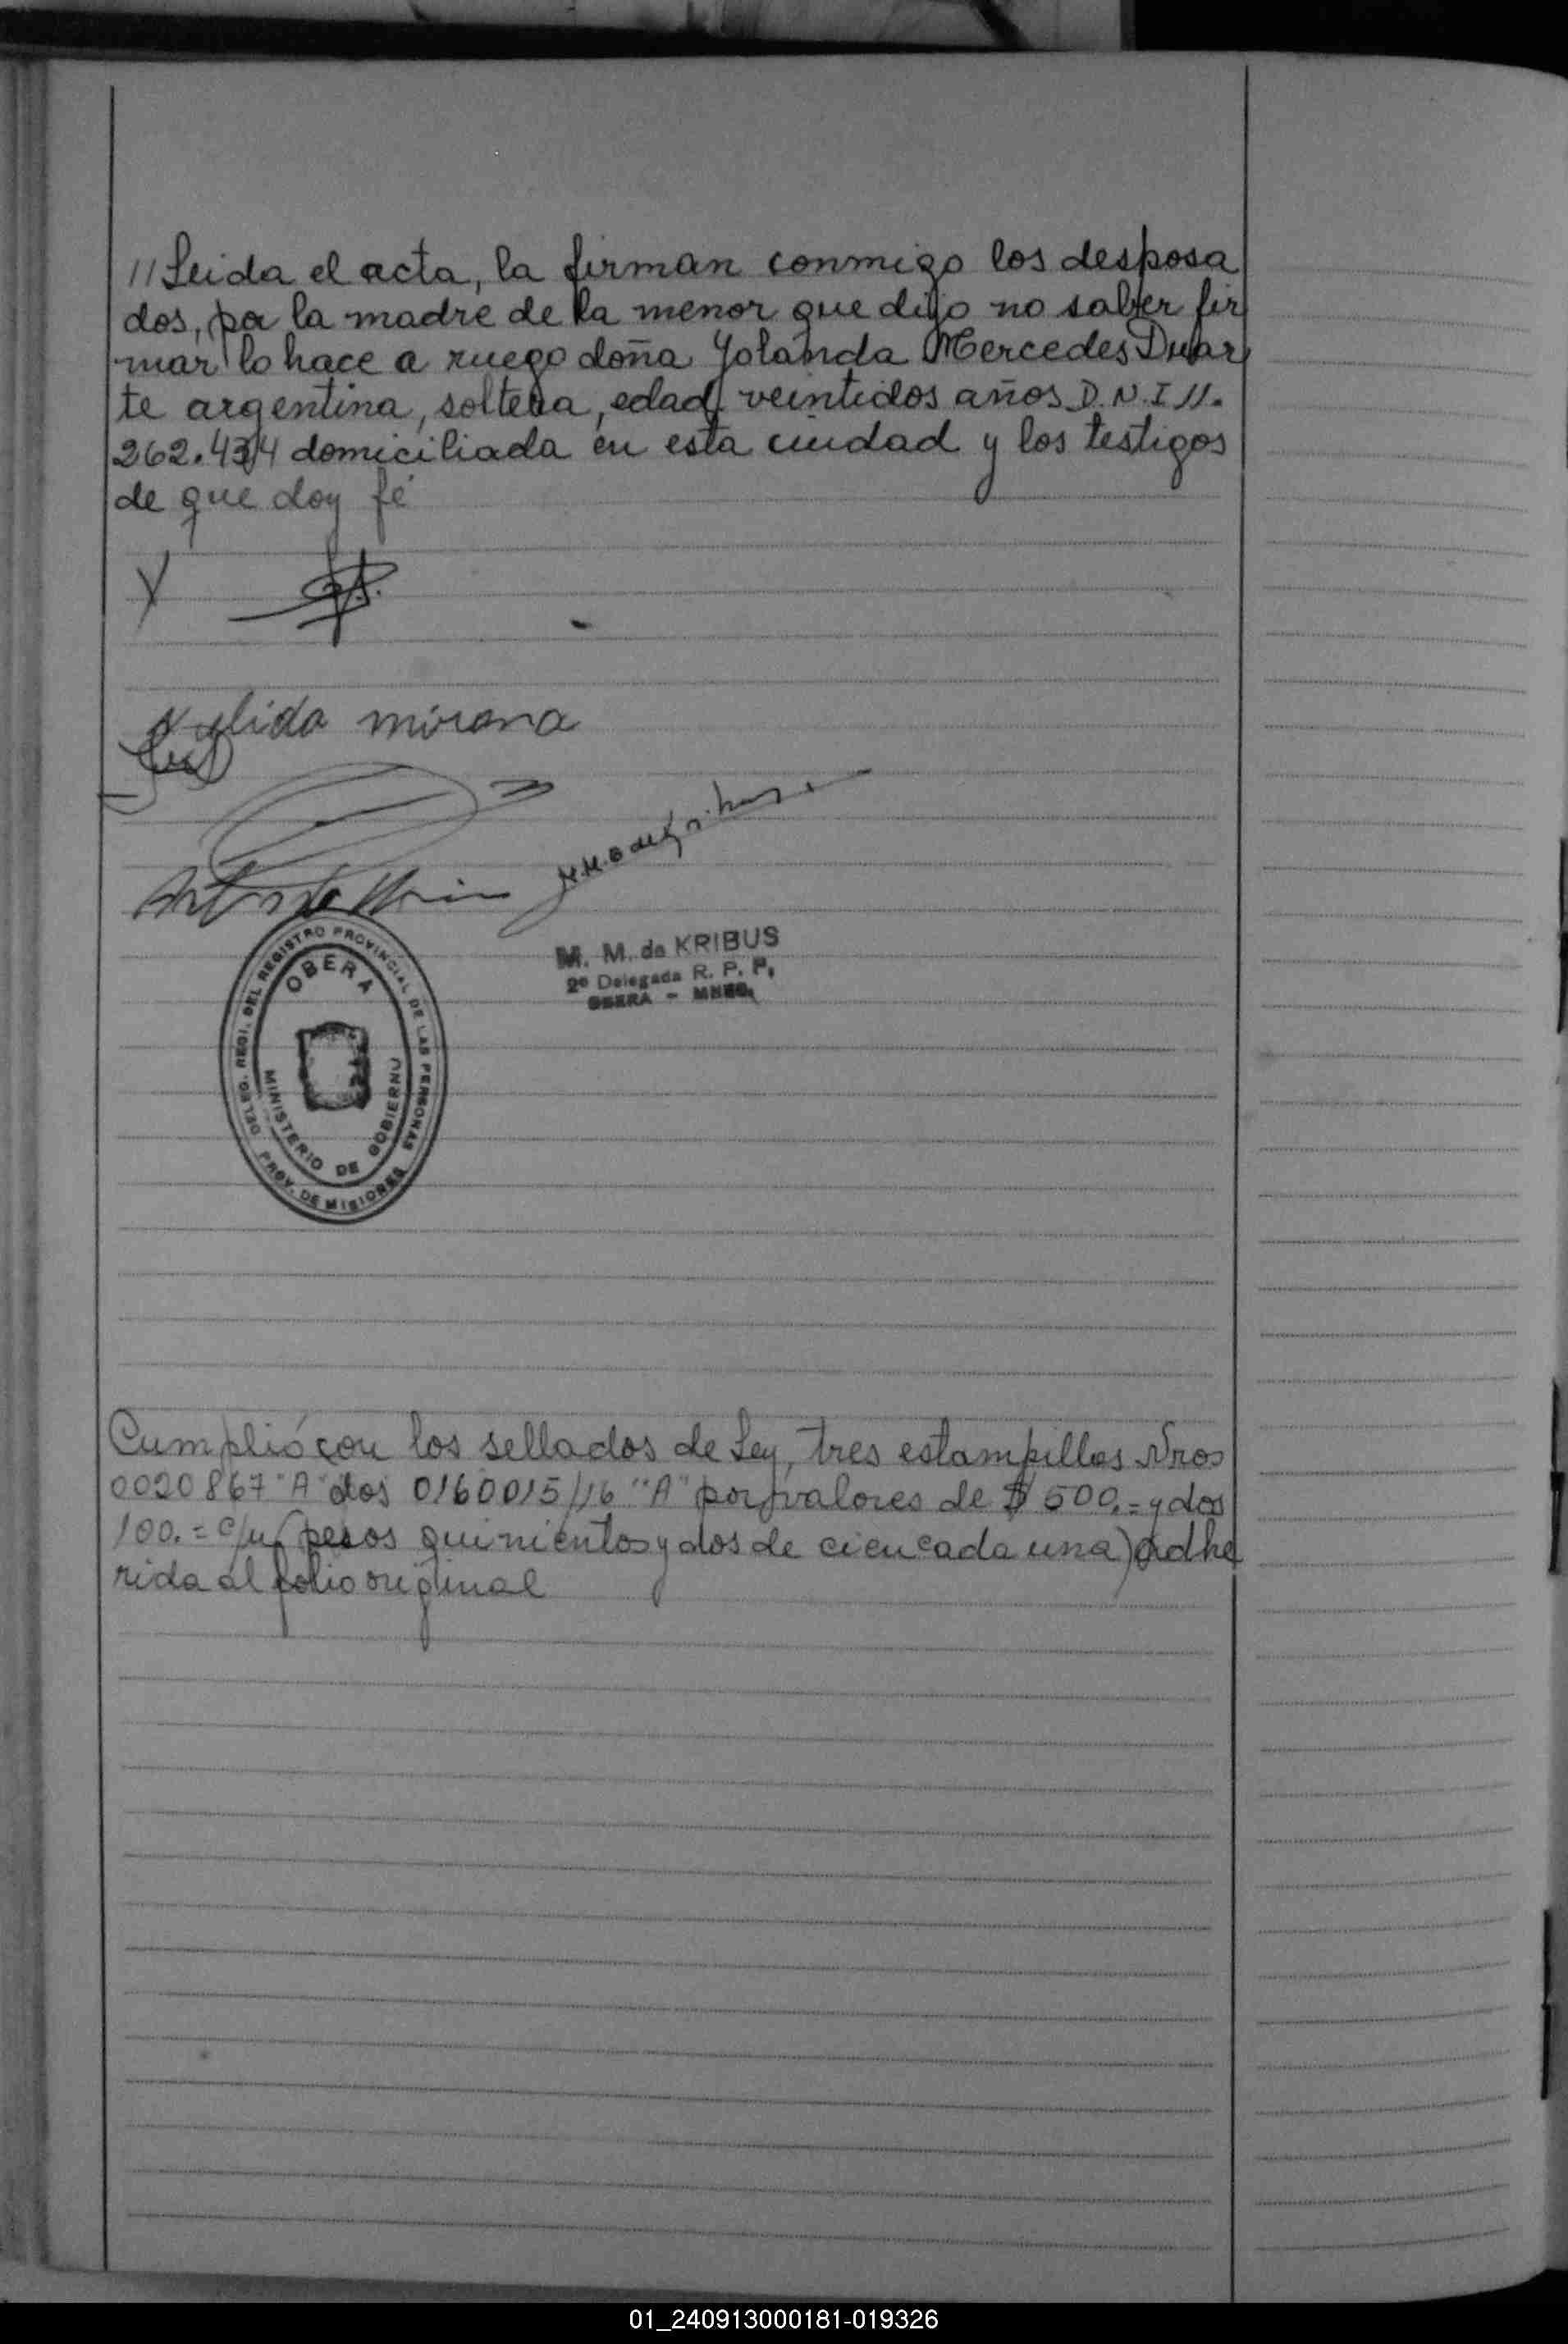 //Leida el acta, la firman conmigo los desposa
dos, por la madre de la menor que dijo no saber fir
mar lo hace a ruego doña Yolanda Mercedes Duar
te argentina, soltera, edad veintidos años D.N.I 11.
262.434 domiciliada en esta ciudad y los testigos
de que doy fé
mirana
M. M. de KRIBUS
2º Delegada R. P. P.
OBERA - MNES.
DELEG. REGI. DEL REGISTRO PROVINCIAL DE LAS PERSONAS
OBERA
MINISTERIO DE GOBIERNO
PROV. DE MISIONES
Cumplió con los sellados de Ley, tres estampillas Nros
0020867 "A" dos 0160015/16 "A" por valores de $ 500.= y dos
100.= c/u (pesos quinientos y dos de cien cada una) adhe
rida al folio original
01_240913000181-019326